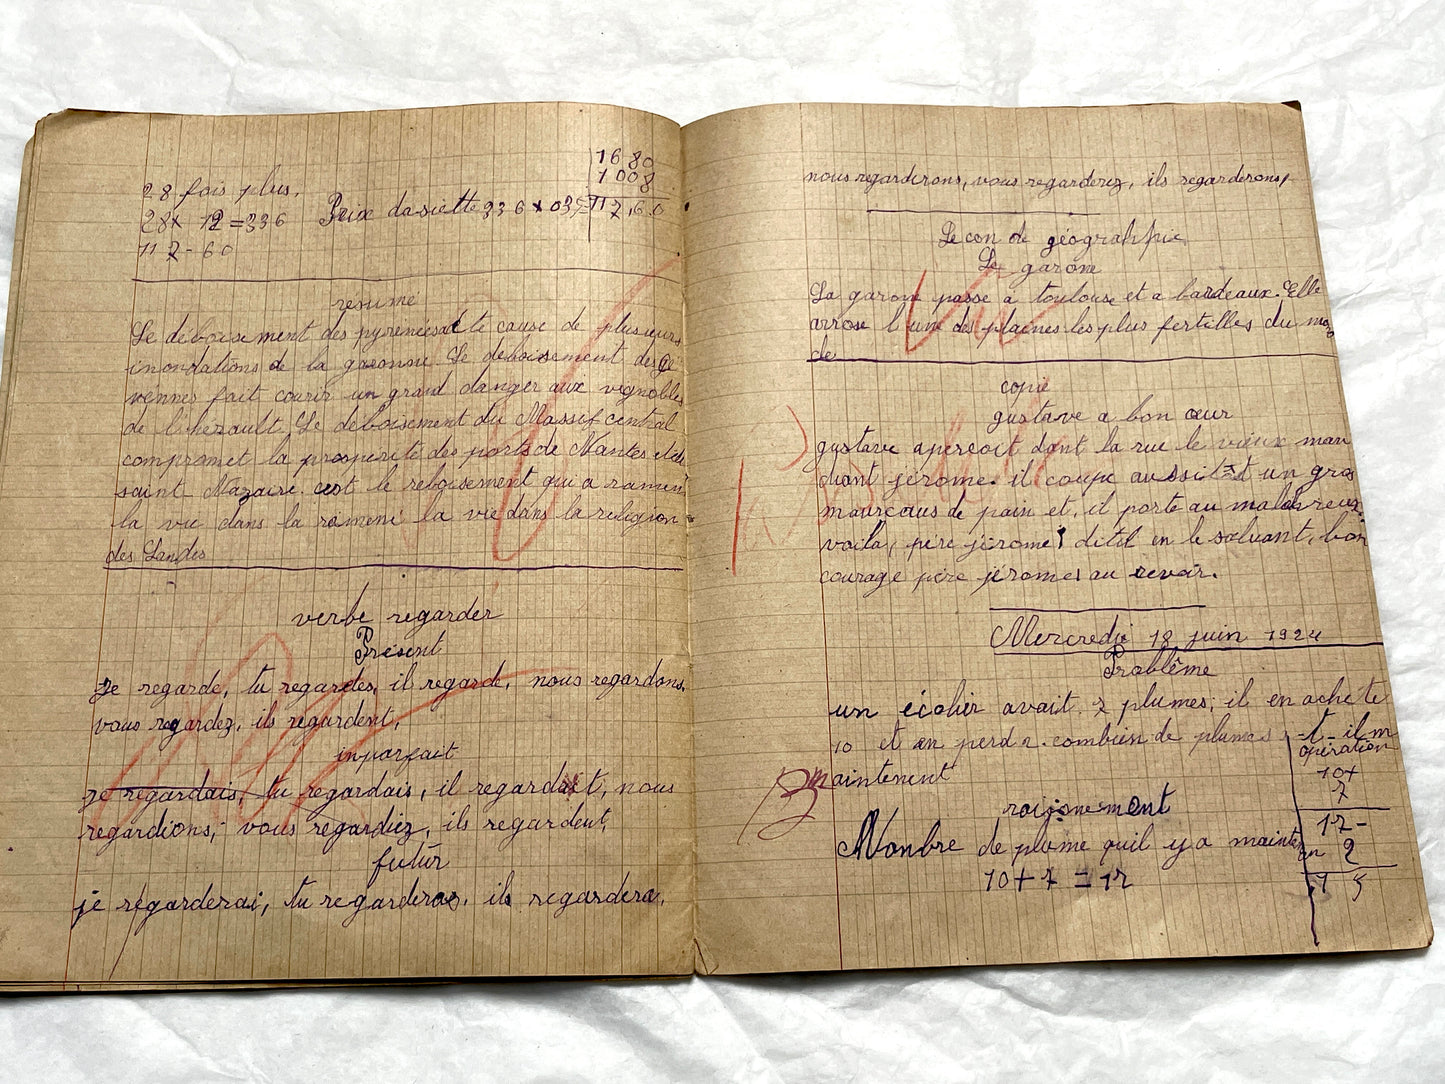 1680
1008
28 fois plus,
28 x 12 = 336 Prix dasiette 336 x 035 = 117,60
117 - 60
resumé
Le déboisement des pyrenées a été te cause de plusieurs
inondations de la garonne. Le deboisement des Ce
vennes fait courir un grand danger aux vignobles
de l'herault. Le déboisement du Massif central
compromet la prosperité des ports de Nantes et de
saint Nazaire. cest le reboisement qui a ramen
la vie dans la rameni la vie dans la religion
des Landes
verbe regarder
Présent
Je regarde, tu regardes, il regarde, nous regardons,
vous regardez, ils regardent,
inparfait
je regardais, tu regardais, il regardait, nous
regardions, vous regardiez, ils regardent,
futur
je regarderai, tu regarderas, il regardera,
nous regarderons, vous regarderez, ils regarderons,
Lecon de géograhpie
La garone
La garone passe a toulouse et a bardeaux. Elle
arrose l'une des plaines les plus fertilles du mon
de
copie
gustave a bon cœur
gustave apercoit dant la rue le vieux man
diant jérome. il coupe aussitot un gros
maurceaus de pain et, il porte au malheureux
voila, père jérome! ditil en le saluant, bon
courage père jéromes au revoir.
Mercredi 18 juin 1924
Prablême
un écolier avait 7 plumes; il en achete
10 et en perd 2. combien de plumes -t-il m
aintenent
opération
10+
7
17-
2
15
raisonement
Nonbre de plume quil y a mainte
en
10 + 7 = 17